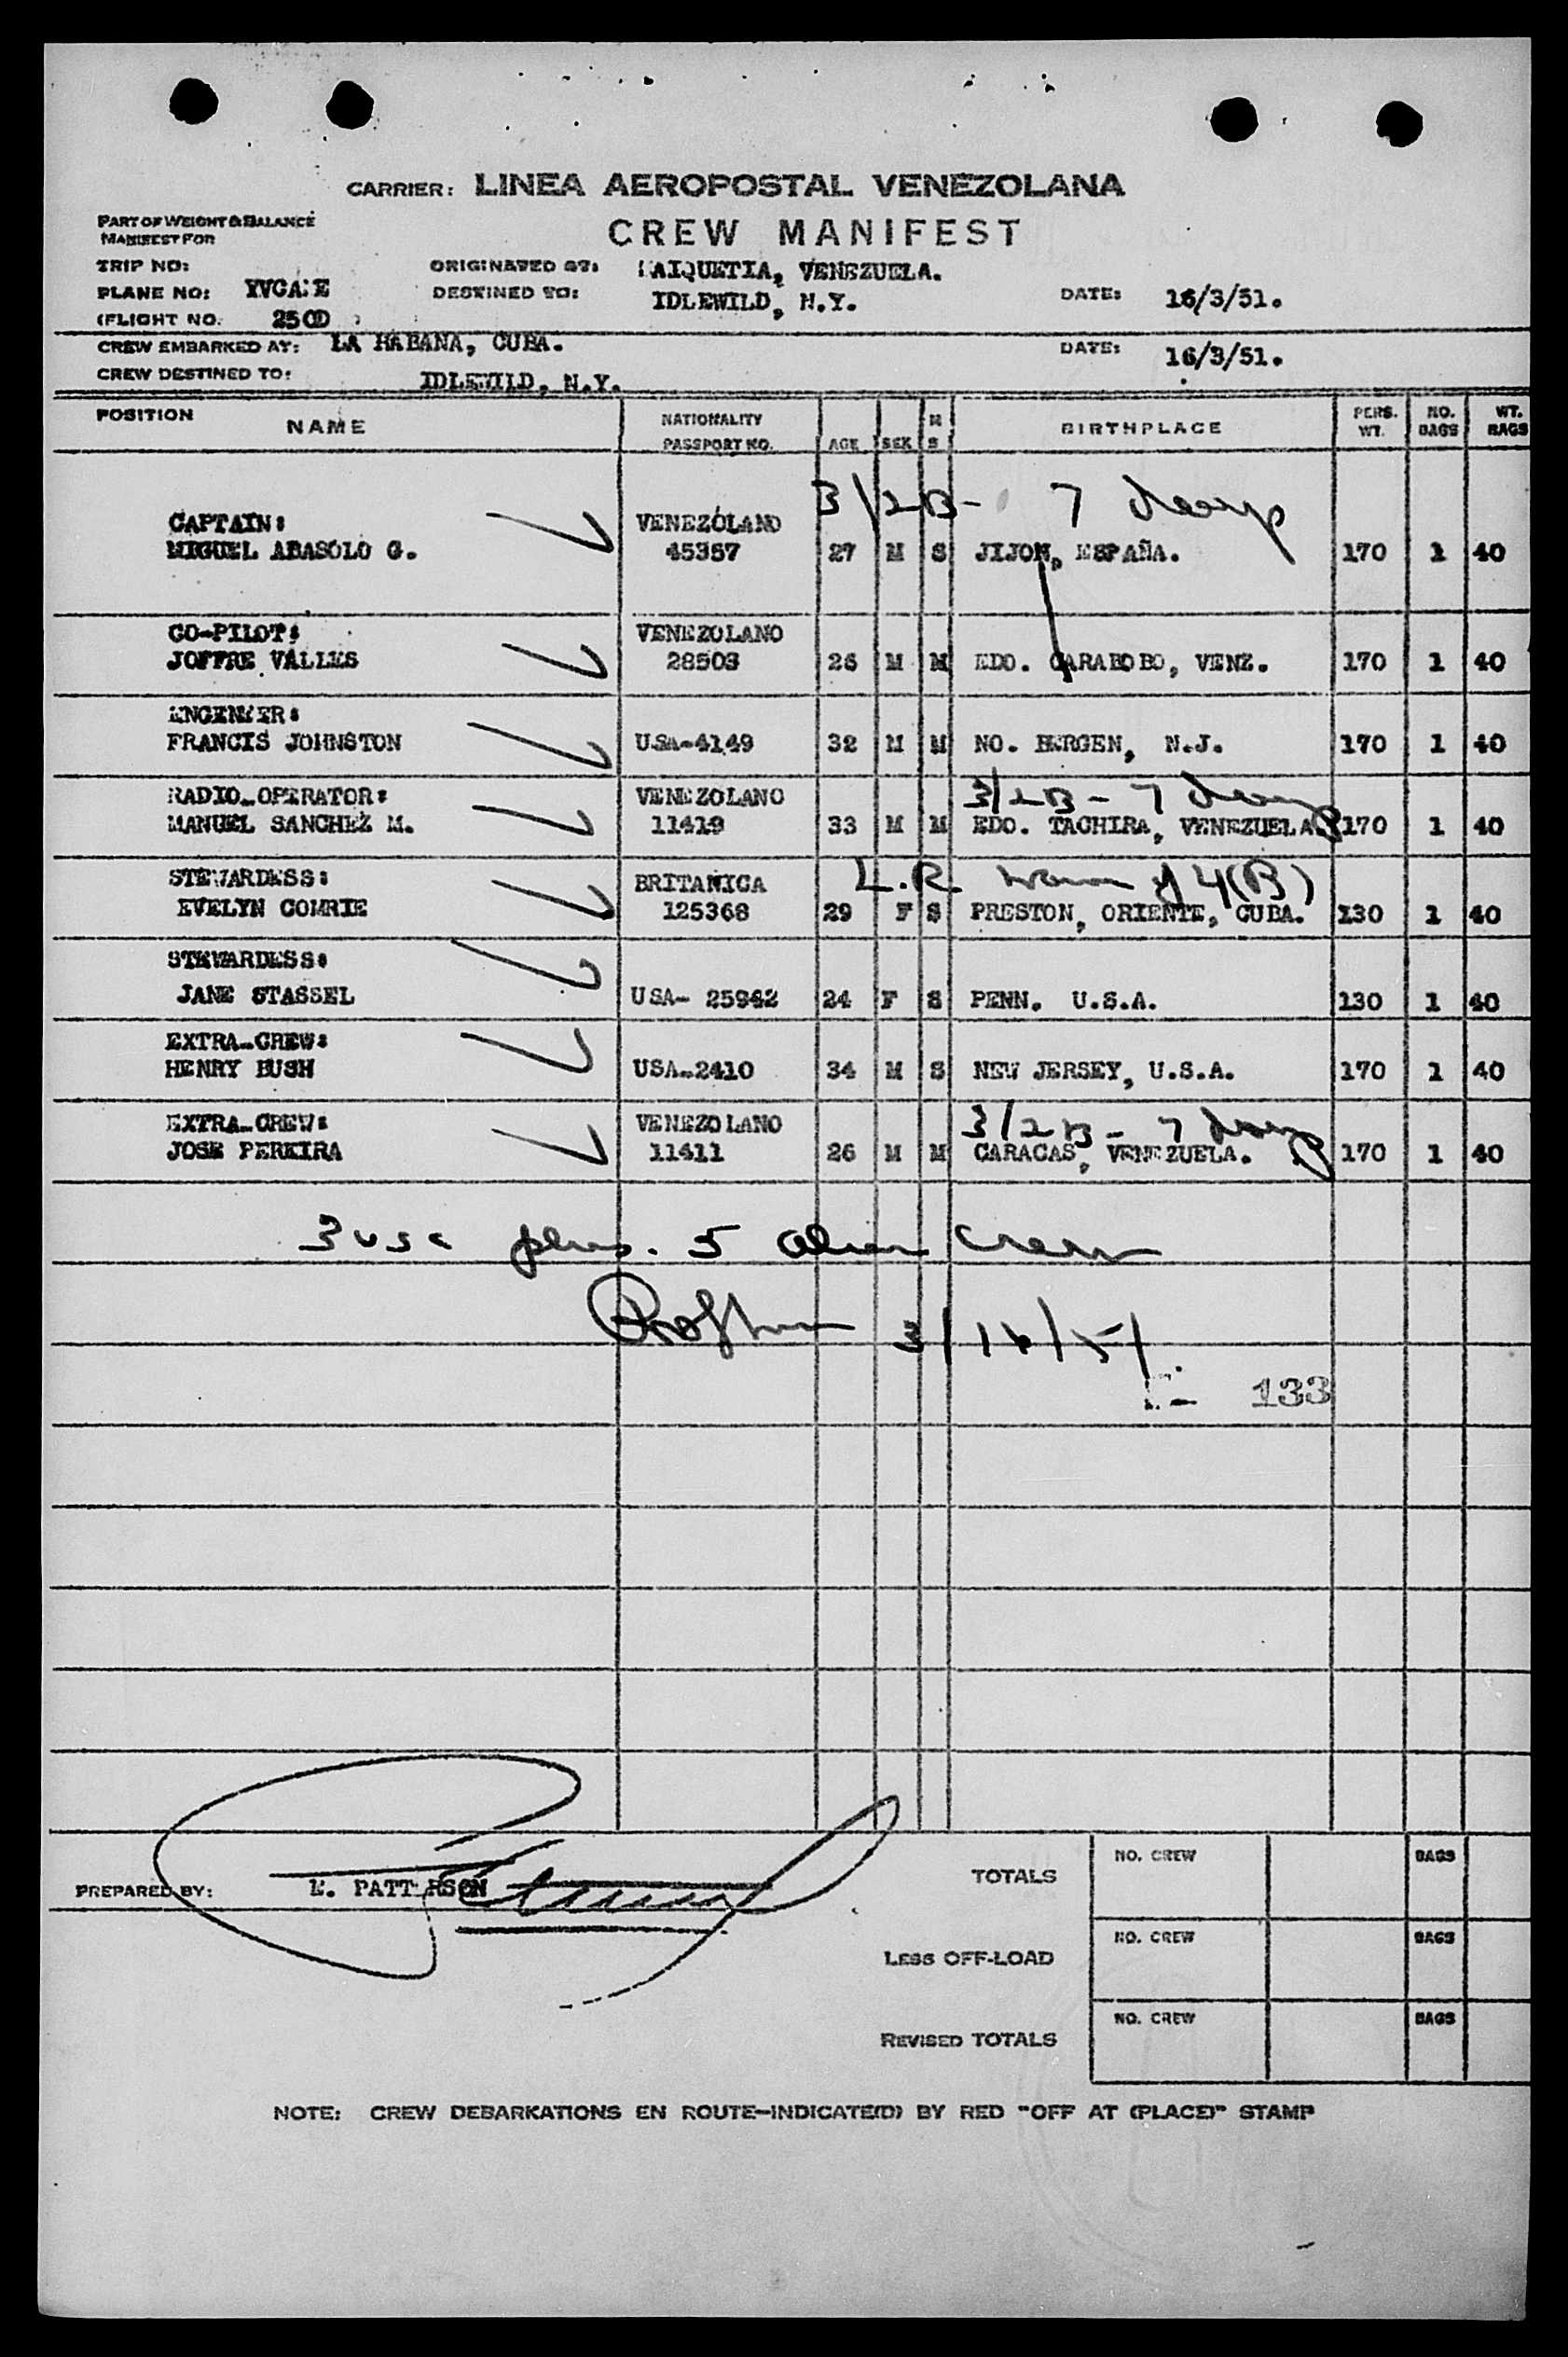 CARRIER: LINEA AEROPOSTAL VENEZOLANA
PART OF WEIGHT & BALANCE
MANIFEST FOR
CREW MANIFEST
TRIP NO:
ORIGINATED AT: MAIQUETIA, VENEZUELA.
PLANE NO:
DESTINED TO: IDLEWILD, N.Y.
DATE: 16/3/51.
(FLIGHT NO. 250
CREW EMBARKED AT: LA HABANA, CUBA.
DATE: 16/3/51.
CREW DESTINED TO: IDLEWILD, N.Y.
POSITION NAME NATIONALITY PASSPORT NO. AGE SEX M S BIRTHPLACE PERS. WT. NO. BAGS WT. BAGS
3/2B- 7 days
CAPTAIN: VENEZOLANO
MIGUEL ABASOLO G. 45357 27 M S JIJON, ESPAÑA. 170 1 40
CO-PILOT: VENEZOLANO
JOFFRE VALLES 28503 26 M M EDO. CARABOBO, VENZ. 170 1 40
ENGENEER:
FRANCIS JOHNSTON USA-4149 32 M M NO. BERGEN, N.J. 170 1 40
RADIO-OPERATOR: VENEZOLANO 3/2B - 7 days
MANUEL SANCHEZ M. 11419 33 M M EDO. TACHIRA, VENEZUELA. 170 1 40
STEWARDESS: BRITANICA L.R. 4(B)
EVELYN COMRIE 125368 29 F S PRESTON, ORIENTE, CUBA. 130 1 40
STEWARDESS:
JANE STASSEL USA- 25942 24 F S PENN. U.S.A. 130 1 40
EXTRA-CREW:
HENRY BUSH USA-2410 34 M S NEW JERSEY, U.S.A. 170 1 40
EXTRA-CREW: VENEZOLANO 3/2B - 7 days
JOSE PEREIRA 11411 26 M M CARACAS, VENEZUELA. 170 1 40
3 usc plus. 5 alien crew
3/16/51
133
TOTALS NO. CREW BAGS
PREPARED BY: E. PATTERSON
LESS OFF-LOAD NO. CREW BAGS
REVISED TOTALS NO. CREW BAGS
NOTE: CREW DEBARKATIONS EN ROUTE-INDICATE(D) BY RED "OFF AT (PLACE)" STAMP